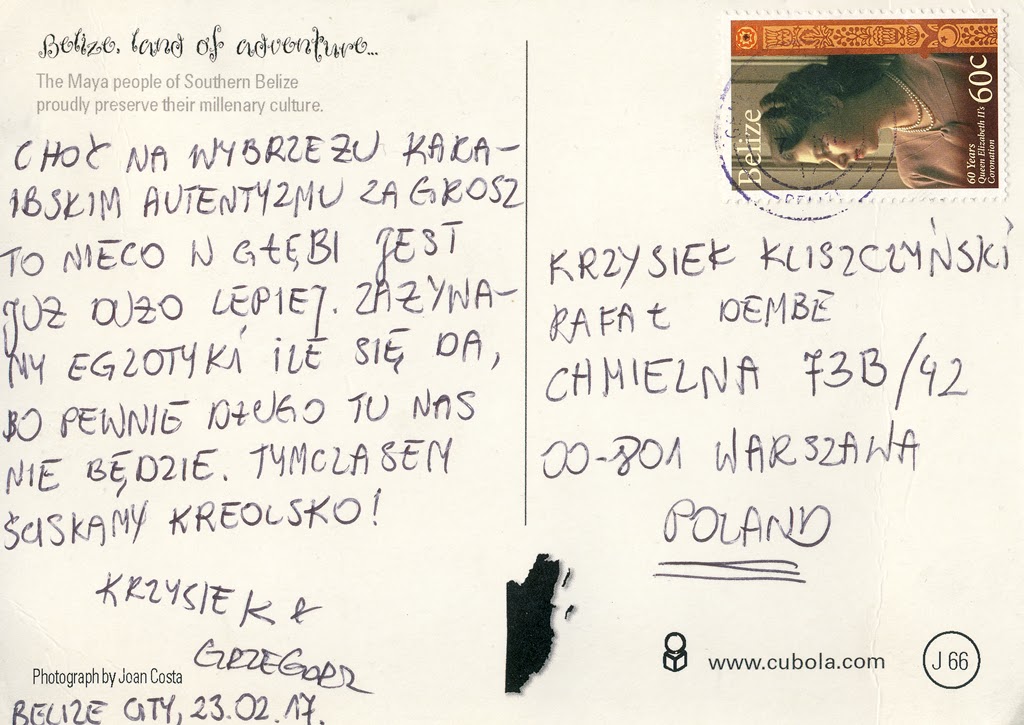 Belize, land of adventure...
The Maya people of Southern Belize
proudly preserve their millenary culture.
CHOĆ NA WYBRZEŻU KARA-
IBSKIM AUTENTYZMU ZA GROSZ
TO NIECO W GŁĘBI JEST
JUŻ DUŻO LEPIEJ. ZAŻYWA-
MY EGZOTYKI ILE SIĘ DA,
BO PEWNIE DŁUGO TU NAS
NIE BĘDZIE. TYMCZASEM
ŚCISKAMY KREOLSKO!
KRZYSIEK &
GRZEGORZ
Photograph by Joan Costa
BELIZE CITY, 23.02.17.
Belize
60c
60 Years
Queen Elizabeth II's
Coronation
KRZYSIEK KLISZCZYŃSKI
RAFAŁ DEMBE
CHMIELNA 73B/42
00-801 WARSZAWA
POLAND
www.cubola.com
J 66